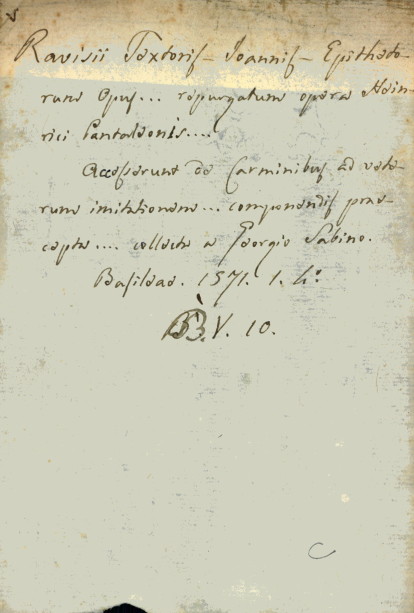 Ravisii Textoris Joannis Epitheto-
rum Opus... repurgatum opera Hein-
rici Pantaleonis....
Accesserunt de Carminibus ad vete-
rum imitationem... componendis prae-
cepta.... collecta a Georgio Sabino.
Basileae. 1571. 1. 4o.
B.V. 10.
C